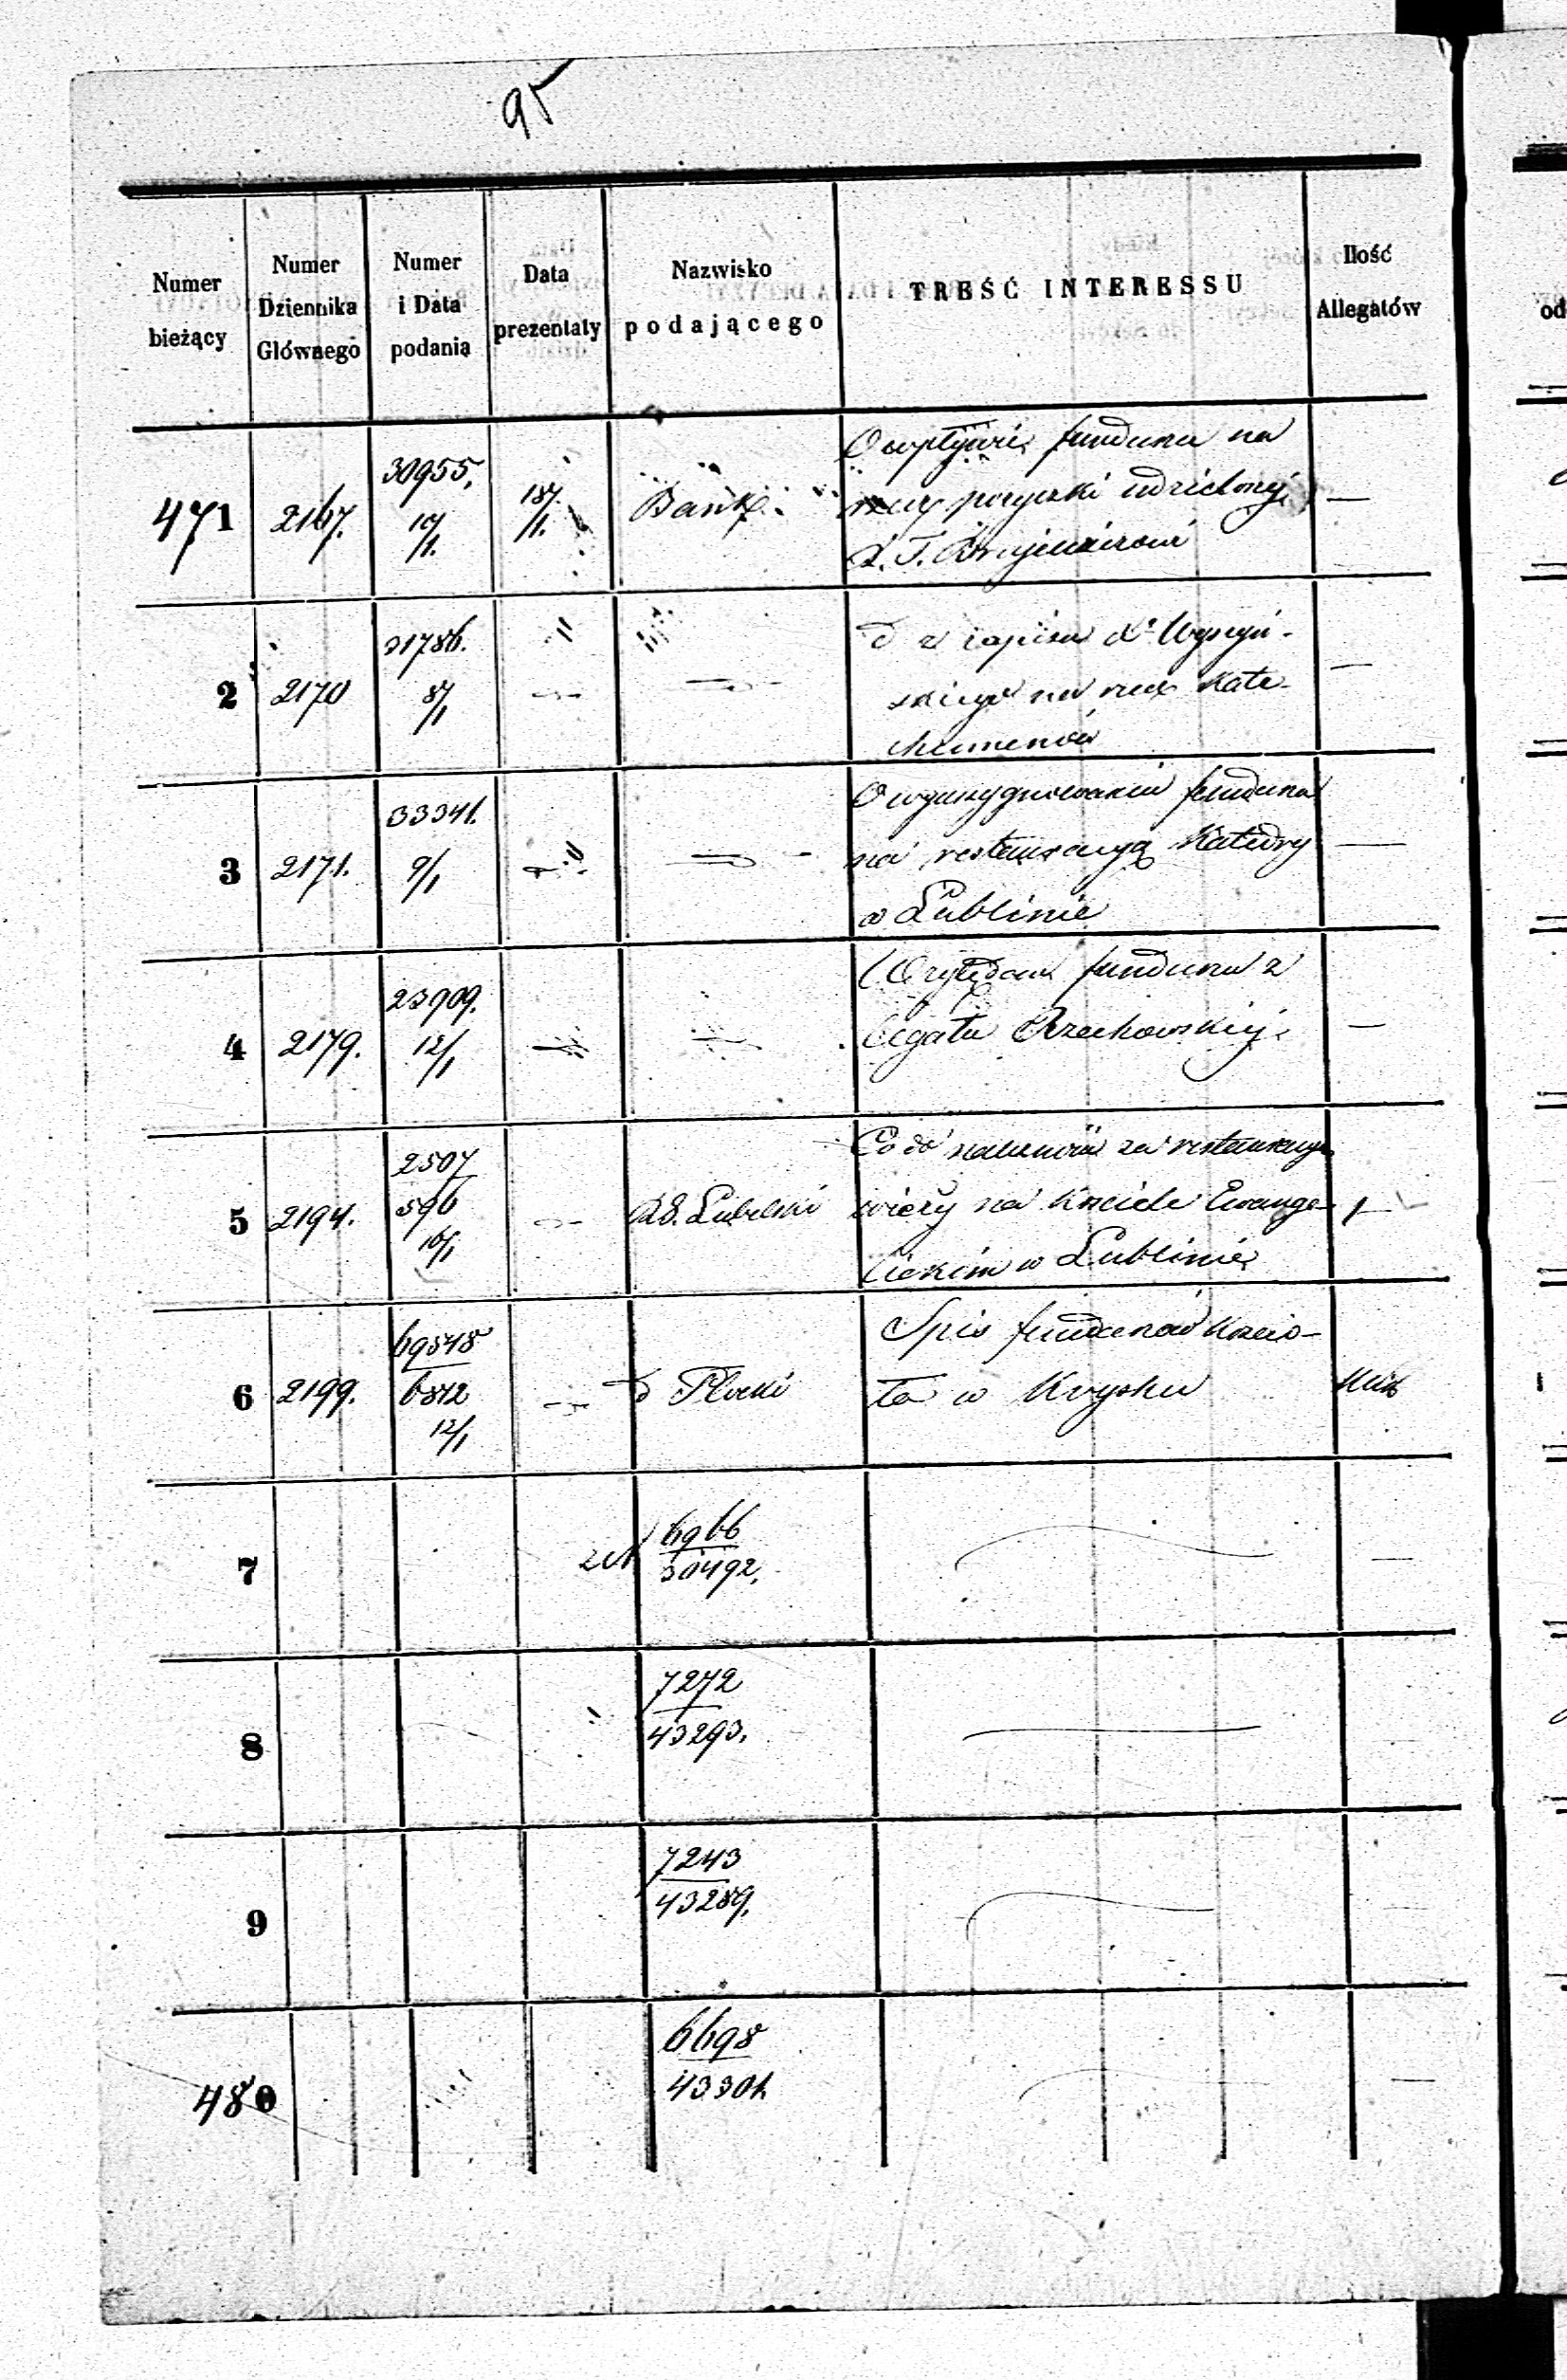 95
Numer bieżący
Numer Dziennika Głównego
Numer i Data podania
Data prezentaty
Nazwisko podającego
TREŚĆ INTERESSU
Ilość Allegatów
471
2167.
30955.
10/1.
18/1.
Bank.
O wpływie funduszu na
rzecz pożyczki udzielonej
—
2
2170
31786.
8/1
d z zapisu
skiego na rzecz Kate-
chumenów
—
3
2171.
33341.
9/1
O wyasygnowaniu funduszu
na restauracyą Katedry
w Lublinie
—
4
2179.
23909.
12/1
funduszu z
legatu Orzechowskiej.
—
5
2194.
2507
596
16/1
R.G. Lubelski
Co do za restauracyą
wieży na Kościele Ewange-
lickim w Lublinie
1
6
2199.
69548
6812
12/1
d Płocki
Spis funduszów Kościo-
ła w Krysku
7
6966
30492.
—
8
7272
43293.
9
7243
43289.
480
6698
43301.
—